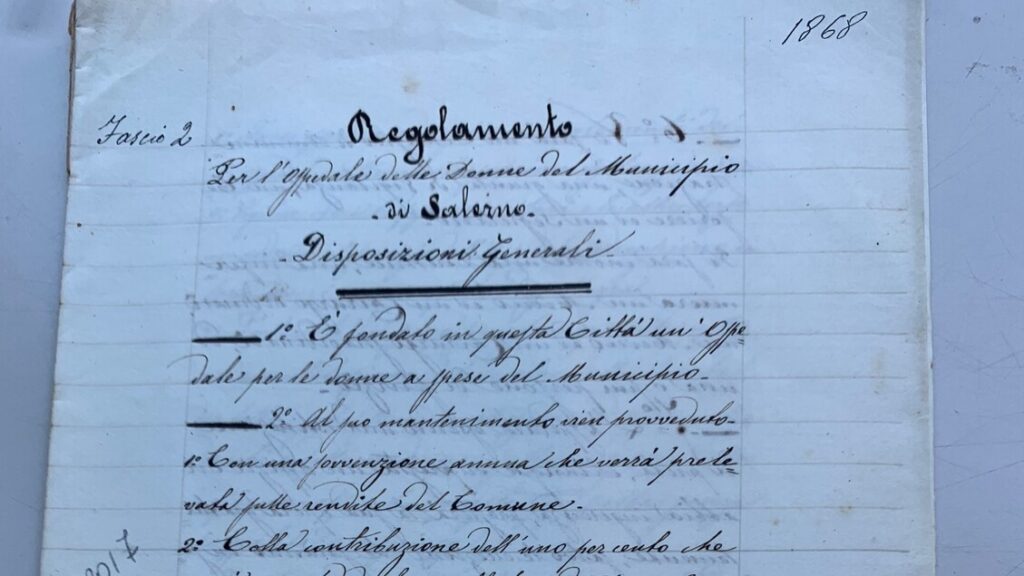 1868
Fascio 2
Regolamento
Per l'Ospedale delle Donne del Municipio
di Salerno.
Disposizioni Generali
1.º È fondato in questa Città un' Ospe=
dale per le donne a spese del Municipio.
2.º Al suo mantenimento vien provveduto.
1.º Con una sovvenzione annua che verrà prele=
vata sulle rendite del Comune.
2.º Colla contribuzione dell'uno per cento che